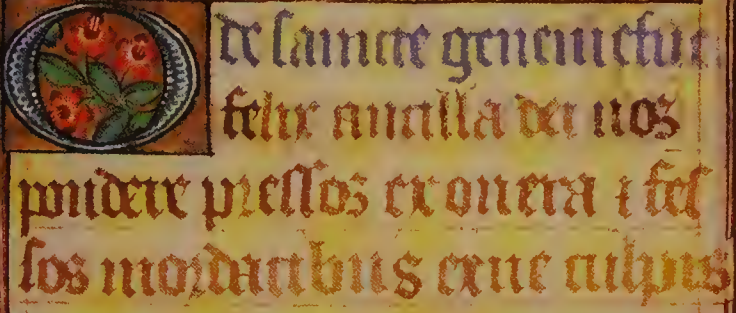 De saincte geneuiefue.
O felix ancilla dei nos
pondere pressos exonera ⁊ fes
sos mordacibus exue culpis